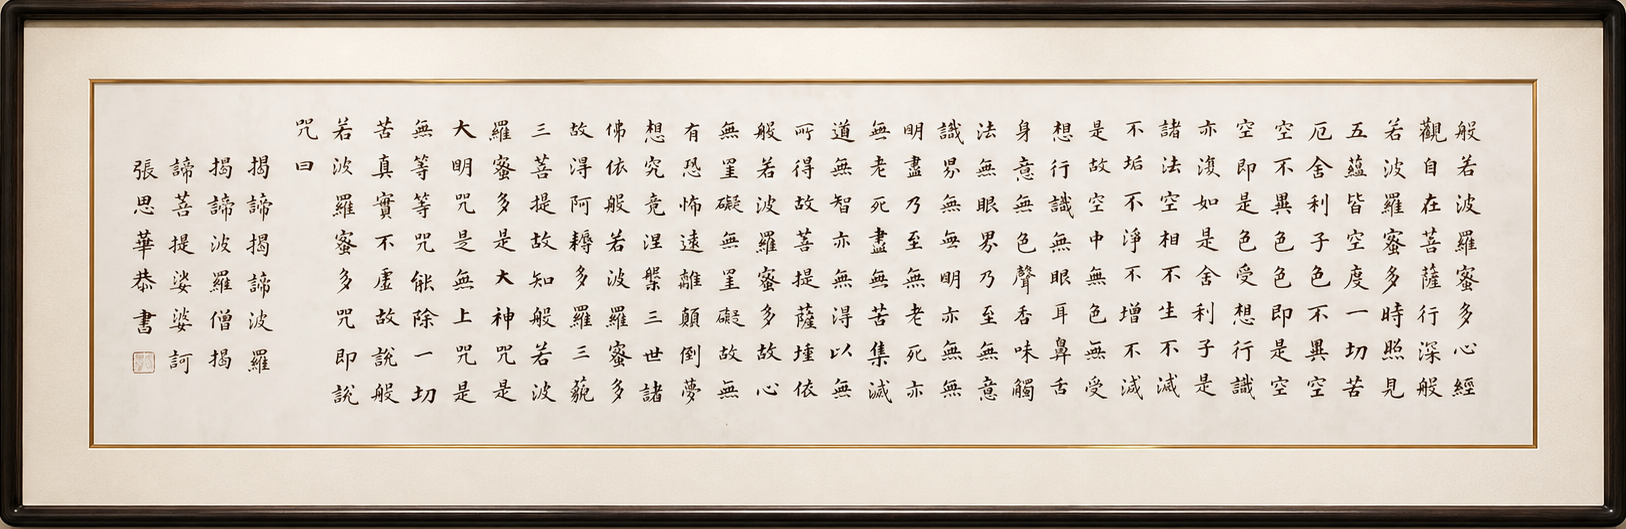 般若波羅蜜多心經
觀自在菩薩行深般
若波羅蜜多時照見
五蘊皆空度一切苦
厄舍利子色不異空
空不異色色即是空
空即是色受想行識
亦復如是舍利子是
諸法空相不生不滅
不垢不淨不增不減
是故空中無色無受
想行識無眼耳鼻舌
身意無色聲香味觸
法無眼界乃至無意
識界無無明亦無無
明盡乃至無老死亦
無老死盡無苦集滅
道無智亦無得以無
所得故菩提薩埵依
般若波羅蜜多故心
無罣礙無罣礙故無
有恐怖遠離顛倒夢
想究竟涅槃三世諸
佛依般若波羅蜜多
故得阿耨多羅三藐
三菩提故知般若波
羅蜜多是大神咒是
大明咒是無上咒是
無等等咒能除一切
苦真實不虛故說般
若波羅蜜多咒即說
咒曰
揭諦揭諦波羅
揭諦波羅僧揭
諦菩提娑婆訶
張思華恭書